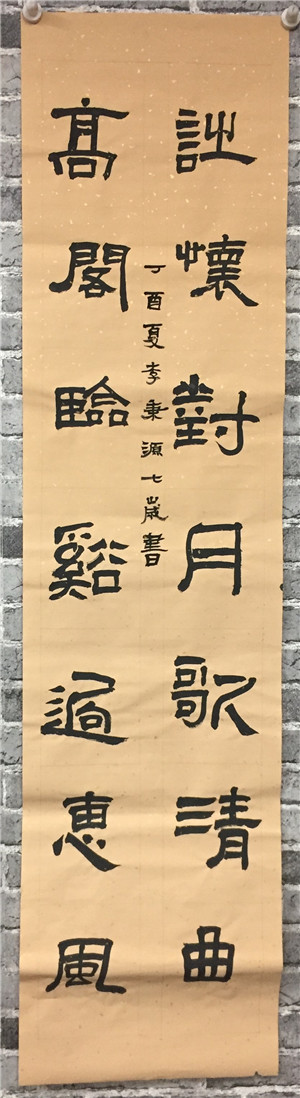 懷對月歌清曲
髙閣臨谿過惠風
丁酉夏李秉源七歲書